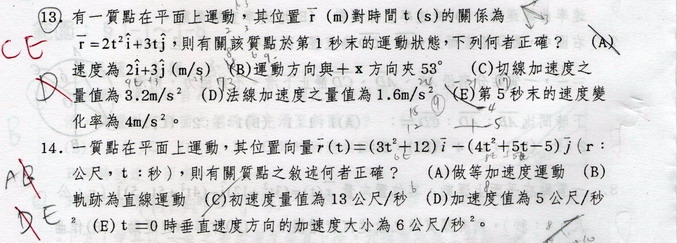 13. 有一質點在平面上運動，其位置 r̄ (m)對時間 t (s)的關係為
CE
r̄=2t²î+3tĵ，則有關該質點於第 1 秒末的運動狀態，下列何者正確？ (A)
速度為 2î+3ĵ (m/s) (B)運動方向與＋x 方向夾 53° (C)切線加速度之
D
量值為 3.2m/s² (D)法線加速度之量值為 1.6m/s² (E)第 5 秒末的速度變
化率為 4m/s²。
14. 一質點在平面上運動，其位置向量 r̄(t)=(3t²+12) ī－(4t²+5t－5) j̄ (r：
公尺，t：秒)，則有關質點之敘述何者正確？ (A)做等加速度運動 (B)
AB
軌跡為直線運動 (C)初速度量值為 13 公尺/秒 (D)加速度值為 5 公尺/秒
DE
² (E) t＝0 時垂直速度方向的加速度大小為 6 公尺/秒²。